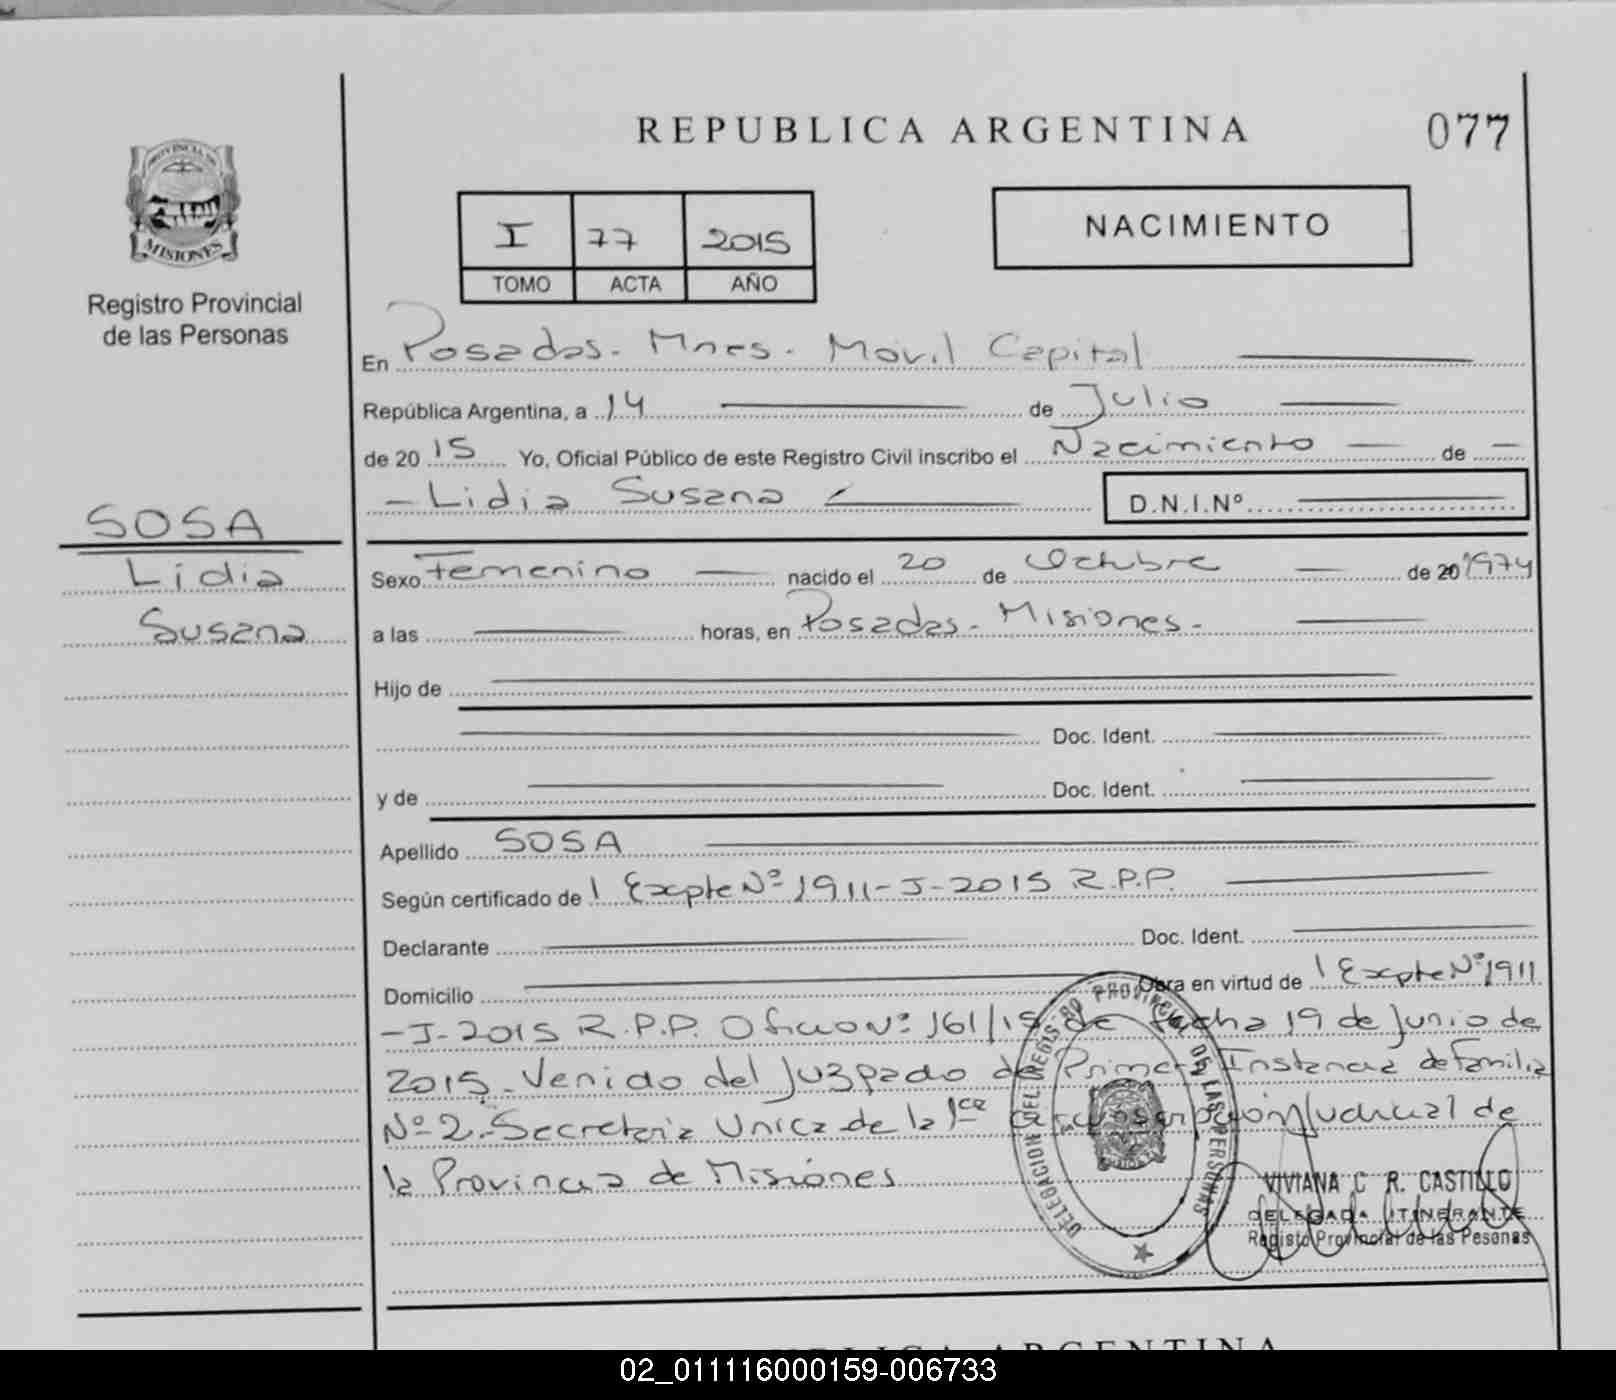 REPUBLICA ARGENTINA
077
PROVINCIA DE
MISIONES
Registro Provincial
de las Personas
I 77 2015
TOMO ACTA AÑO
NACIMIENTO
En Posadas - Mnes - Movil Capital
República Argentina, a 14 de Julio
de 2015 Yo, Oficial Público de este Registro Civil inscribo el Nacimiento de
- Lidia Susana
D.N.I.Nº
SOSA
Lidia
Susana
Sexo Femenino nacido el 20 de Octubre de 20 1974
a las horas, en Posadas - Misiones -
Hijo de
Doc. Ident.
y de Doc. Ident.
Apellido SOSA
Según certificado de 1 Expte Nº 1911-J-2015 R.P.P.
Declarante Doc. Ident.
Domicilio Obra en virtud de 1 Expte Nº 1911
-J-2015 R.P.P. Oficio Nº 161/15 de fecha 19 de Junio de
2015 - Venido del Juzgado de Primera Instancia de Familia
Nº 2 - Secretaria Unica de la 1ra Circunscripción Judicial de
la Provincia de Misiones
DELEGACION DEL REGISTRO PROVINCIAL DE LAS PERSONAS
VIVIANA C R. CASTILLO
DELEGADA ITINERANTE
Registo Provincial de las Pesonas
REPUBLICA ARGENTINA
02_011116000159-006733